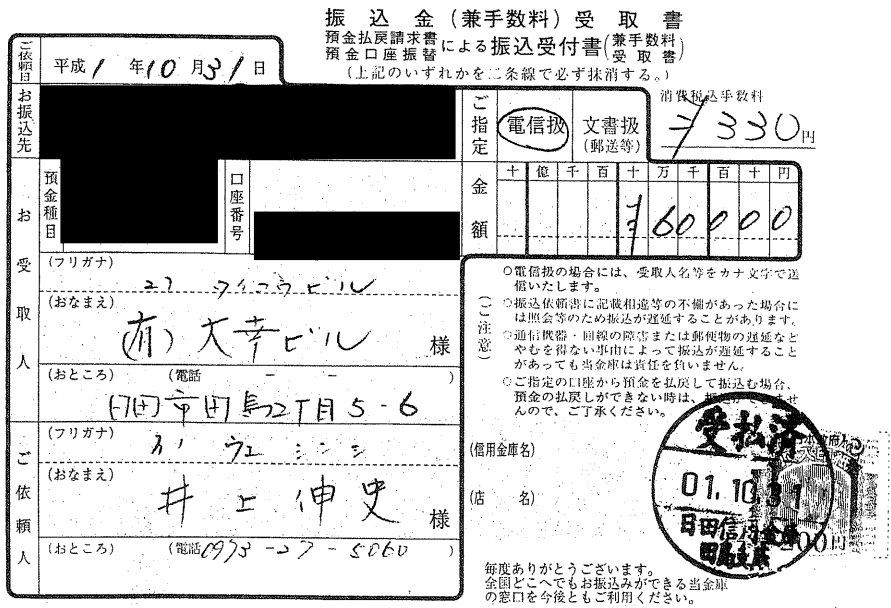 振込金(兼手数料)受取書
預金払戻請求書
預金口座振替
による振込受付書(兼手数料受取書)
(上記のいずれかを二条線で必ず抹消する。)
ご依頼日 平成1年10月31日
お振込先
ご指定 電信扱 文書扱(郵送等)
消費税込手数料
¥330円
預金種目
口座番号
金額 十億千百十万千百十円
¥60000
お受取人
(フリガナ)
(おなまえ)
(有)大幸ビル 様
(おところ) (電話 - - )
日田市田島2丁目5-6
ご依頼人
(フリガナ)
(おなまえ)
井上伸史 様
(おところ) (電話0973-27-5060)
(ご注意)
○電信扱の場合には、受取人名等をカナ文字で送信いたします。
○振込依頼書に記載相違等の不備があった場合には照会等のため振込が遅延することがあります。
○通信機器・回線の障害または郵便物の遅延などやむを得ない事由によって振込が遅延することがあっても当金庫は責任を負いません。
○ご指定の口座から預金を払戻して振込む場合、
預金の払戻しができない時は、
んので、ご了承ください。
(信用金庫名)
(店 名)
受払済
01.10.31
日田信用金庫
田島支店
200円
毎度ありがとうございます。
全国どこへでもお振込みができる当金庫
の窓口を今後ともご利用ください。